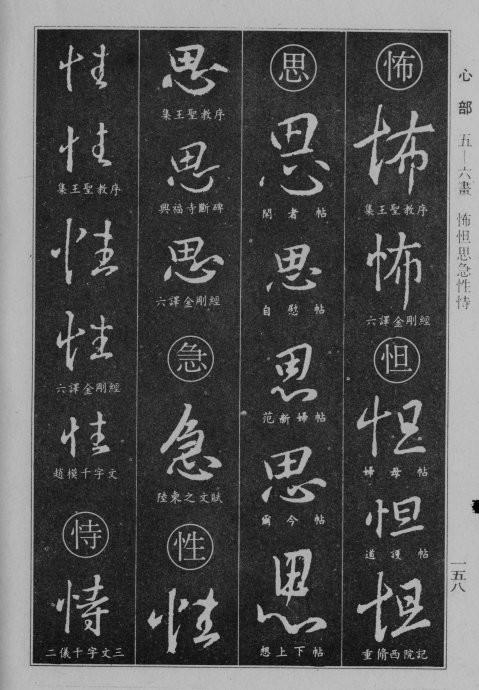 心部 五—六畫 怖怛思急性恃
一五八
怖
怖
集王聖教序
怖
六譯金剛經
怛
怛
婦母帖
怛
道護帖
怛
重脩西院記
思
思
者帖
思
自慰帖
思
范新婦帖
思
爾今帖
思
想上下帖
思
集王聖教序
思
興福寺斷碑
思
六譯金剛經
急
急
陸柬之文賦
性
性
性
性
集王聖教序
性
性
六譯金剛經
性
趙模千字文
恃
恃
二儀千字文三